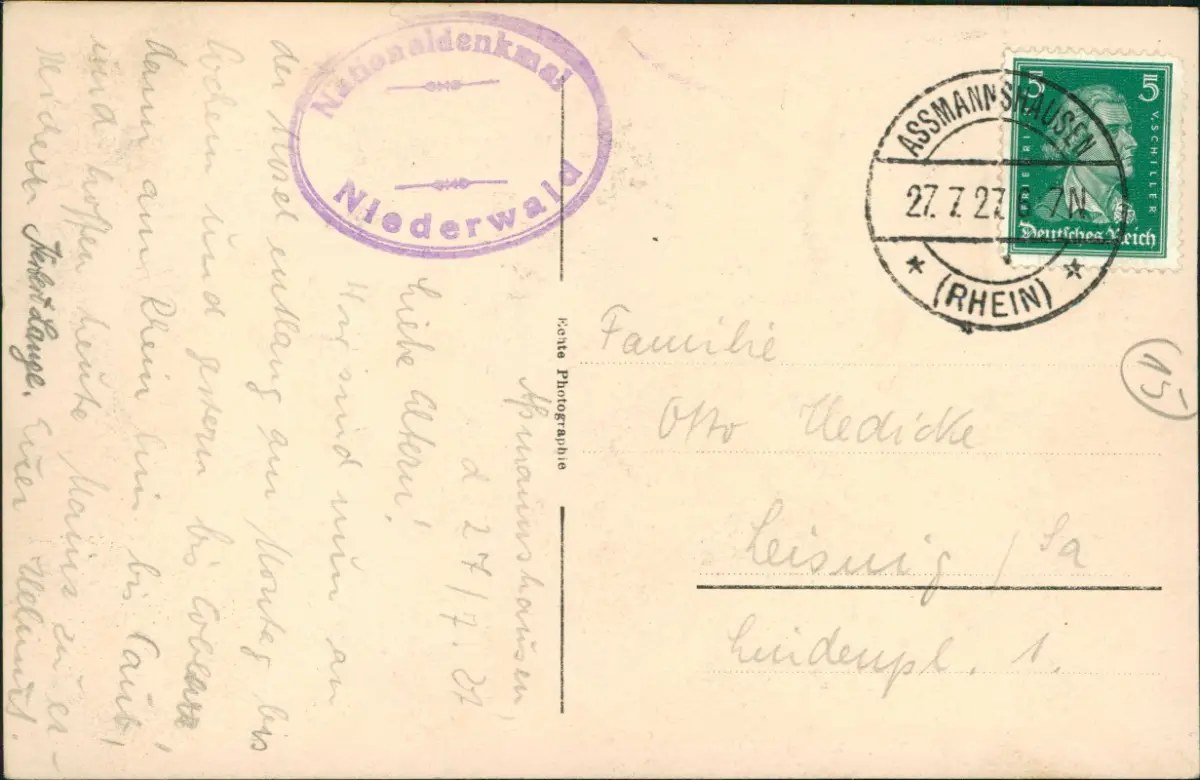 Nationaldenkmal
Niederwald
ASSMANNSHAUSEN
27. 7. 27. 6 7N
(RHEIN)
5 5
V. SCHILLER
Deutsches Reich
15
Familie
Otto Hedicke
Leisnig / Sa
Lindenpl. 1.
Echte Photographie
Aßmannshausen,
d 27/7. 27
Liebe Eltern!
Wir sind nun an
der Mosel entlang am Montag bis
Cochem und gestern bis Coblenz,
dann am Rhein hin bis Caub,
und hoffen heute Mainz zu er-
reichen. Euer Helmut.
Herbert Lange.